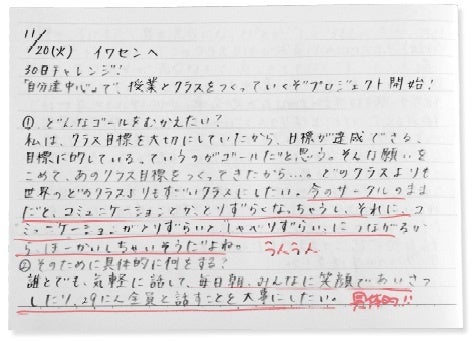 11/20(火) イワセンへ
30日チャレンジ!
「自分達中心」で、授業とクラスをつくっていくぞプロジェクト開始!
①どんなゴールをむかえたい?
私は、クラス目標を大切にしていたから、目標が達成できる、
目標に的している、っていうのがゴールだと思う。そんな願いを
こめて、あのクラス目標をつくってきたから…。どのクラスよりも
世界のどのクラスよりもすごいクラスにしたい。今のサークルのまま
だと、コミュニケーションとか、とりずらくなっちゃうし、それに、コ
ミュニケーションがとりずらいと、しゃべりずらい、に つながるか
ら、ほーかいしちゃいそうだよね。 うんうん
②そのために具体的に何をする?
誰とでも、気軽に話して、毎日朝、みんなに笑顔であいさつ
したり、29にん全員と話すことを大事にしたい。 具体的!!